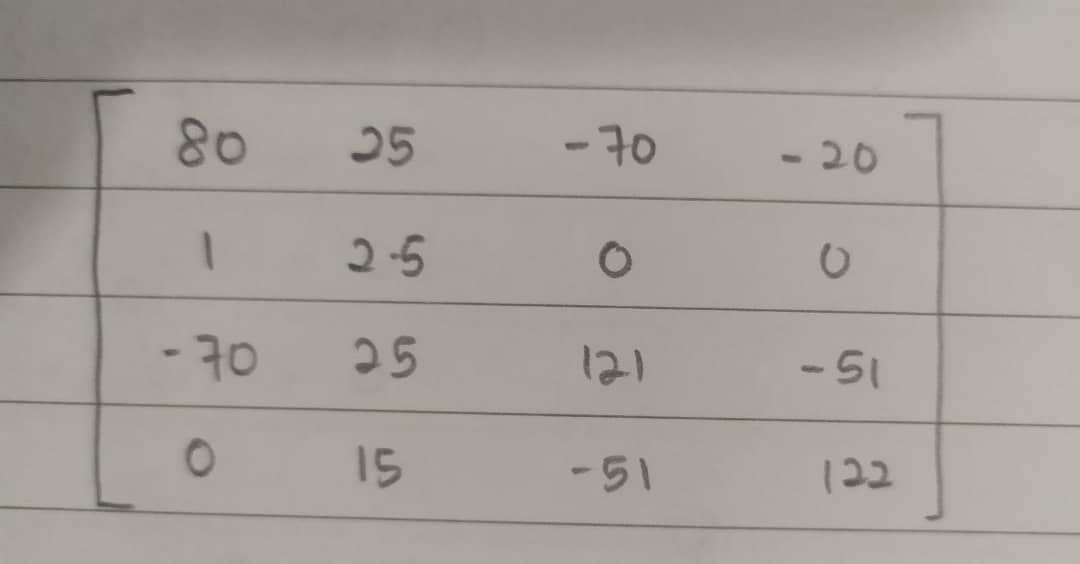 80 25 -70 -20
1 2.5 0 0
-70 25 121 -51
0 15 -51 122